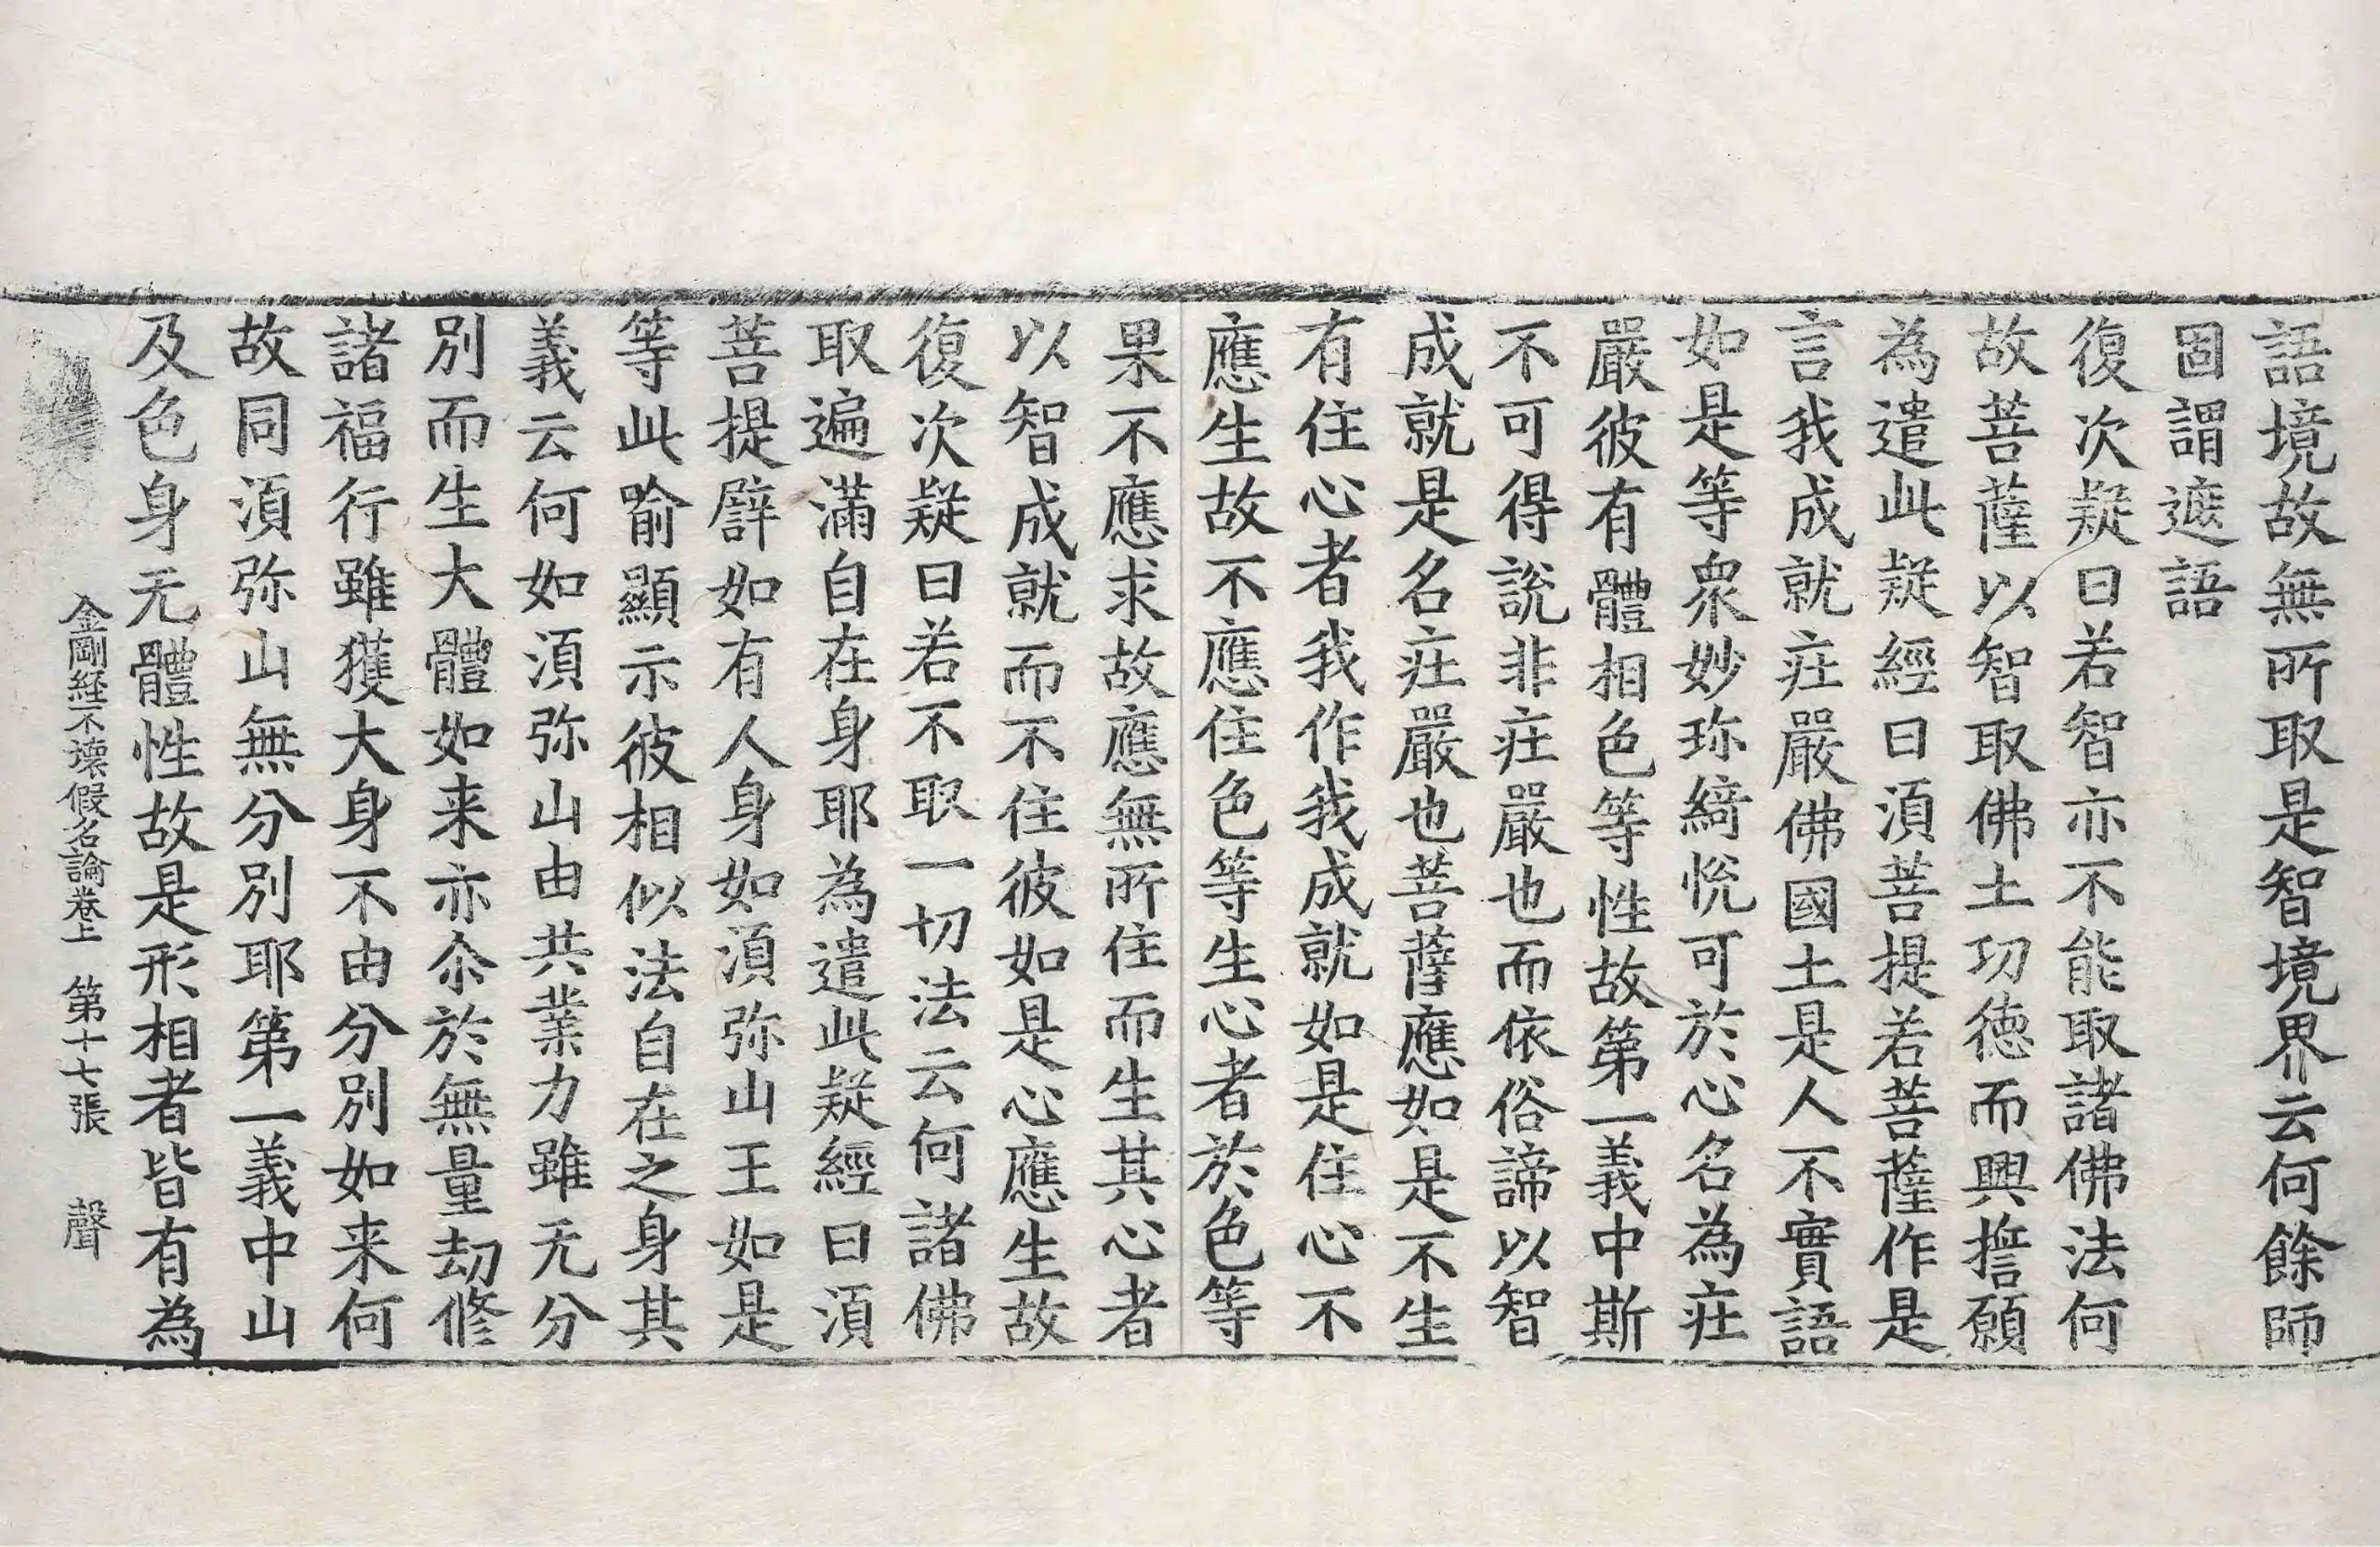 語境故無所取是智境界云何餘師
固謂遮語
復次疑曰若智亦不能取諸佛法何
故菩薩以智取佛土功徳而興誓願
為遣此疑經曰湏菩提若菩薩作是
言我成就庄嚴佛國土是人不實語
如是等衆妙珎綺恱可於心名為庄
嚴彼有體相色等性故第一義中斯
不可得說非庄嚴也而依俗諦以智
成就是名庄嚴也菩薩應如是不生
有住心者我作我成就如是住心不
應生故不應住色等生心者於色等
果不應求故應無所住而生其心者
以智成就而不住彼如是心應生故
復次疑曰若不取一切法云何諸佛
取遍滿自在身耶為遣此疑經曰湏
菩提譬如有人身如湏弥山王如是
等此喻顯示彼相似法自在之身其
義云何如湏弥山由共業力雖无分
別而生大體如来亦尒於無量劫修
諸福行雖獲大身不由分別如来何
故同湏弥山無分別耶第一義中山
及色身无體性故是形相者皆有為
金剛経不壊假名論卷上　第十七張　聲